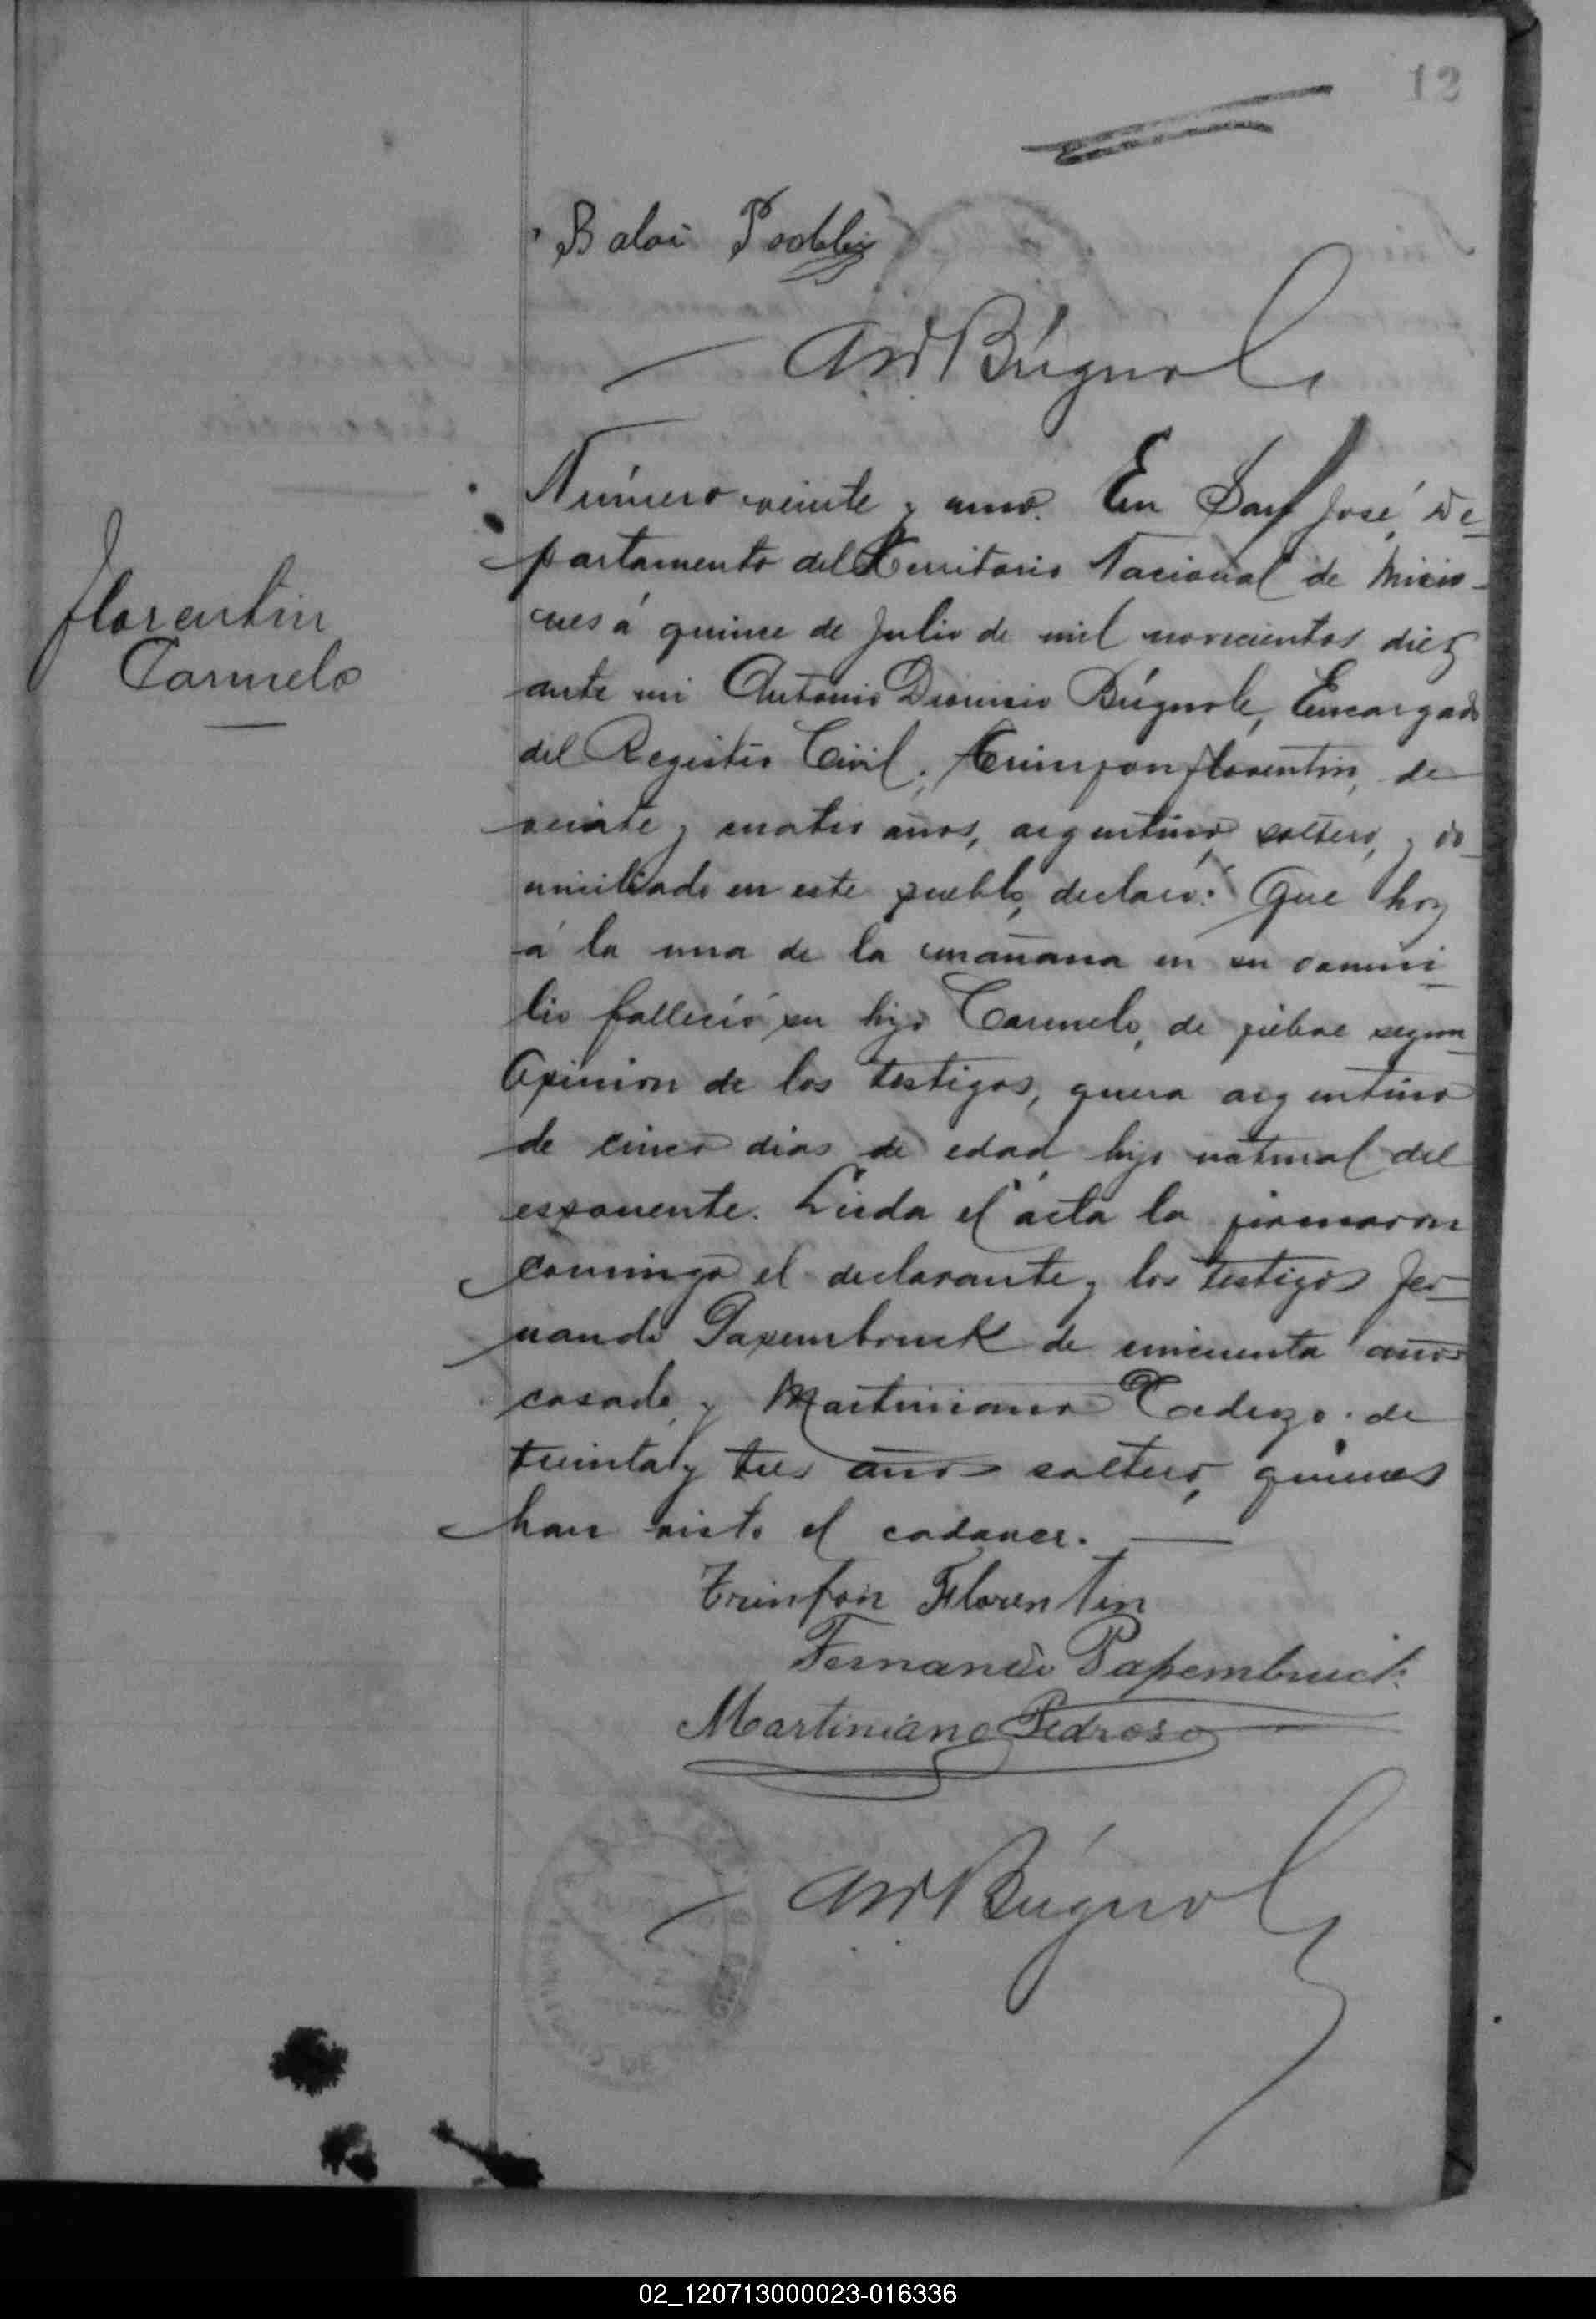 12
Baloi
AD Búgnol
Número veinte y uno. En San José, De-
partamento del Territorio Nacional de Misio-
nes á quince de Julio de mil novecientos diez
ante mi Antonio Dionisio Búgnole, Encargado
del Registro Civil, Trinfon Florentin, de
veinte y cuatro años, argentino, soltero, y do-
miciliado en este pueblo, declaró: Que hoy
á la una de la mañana en su domici-
lio falleció su hijo Carmelo, de fiebre segun
Opinion de los testigos, quera argentino
de cinco dias de edad, hijo natural del
esponente. Leida el acta la firmaron
conmigo el declarante y los testigos Fer-
nando Papembruck de cincuenta años
casado, y Martiniano Pedrozo de
treinta y tres años soltero, quienes
han visto el cadaver.
Trinfon Florentin
Fernando Papembruck
Martiniano Pedroso
AD Búgnol
Florentin
Carmelo
02_120713000023-016336